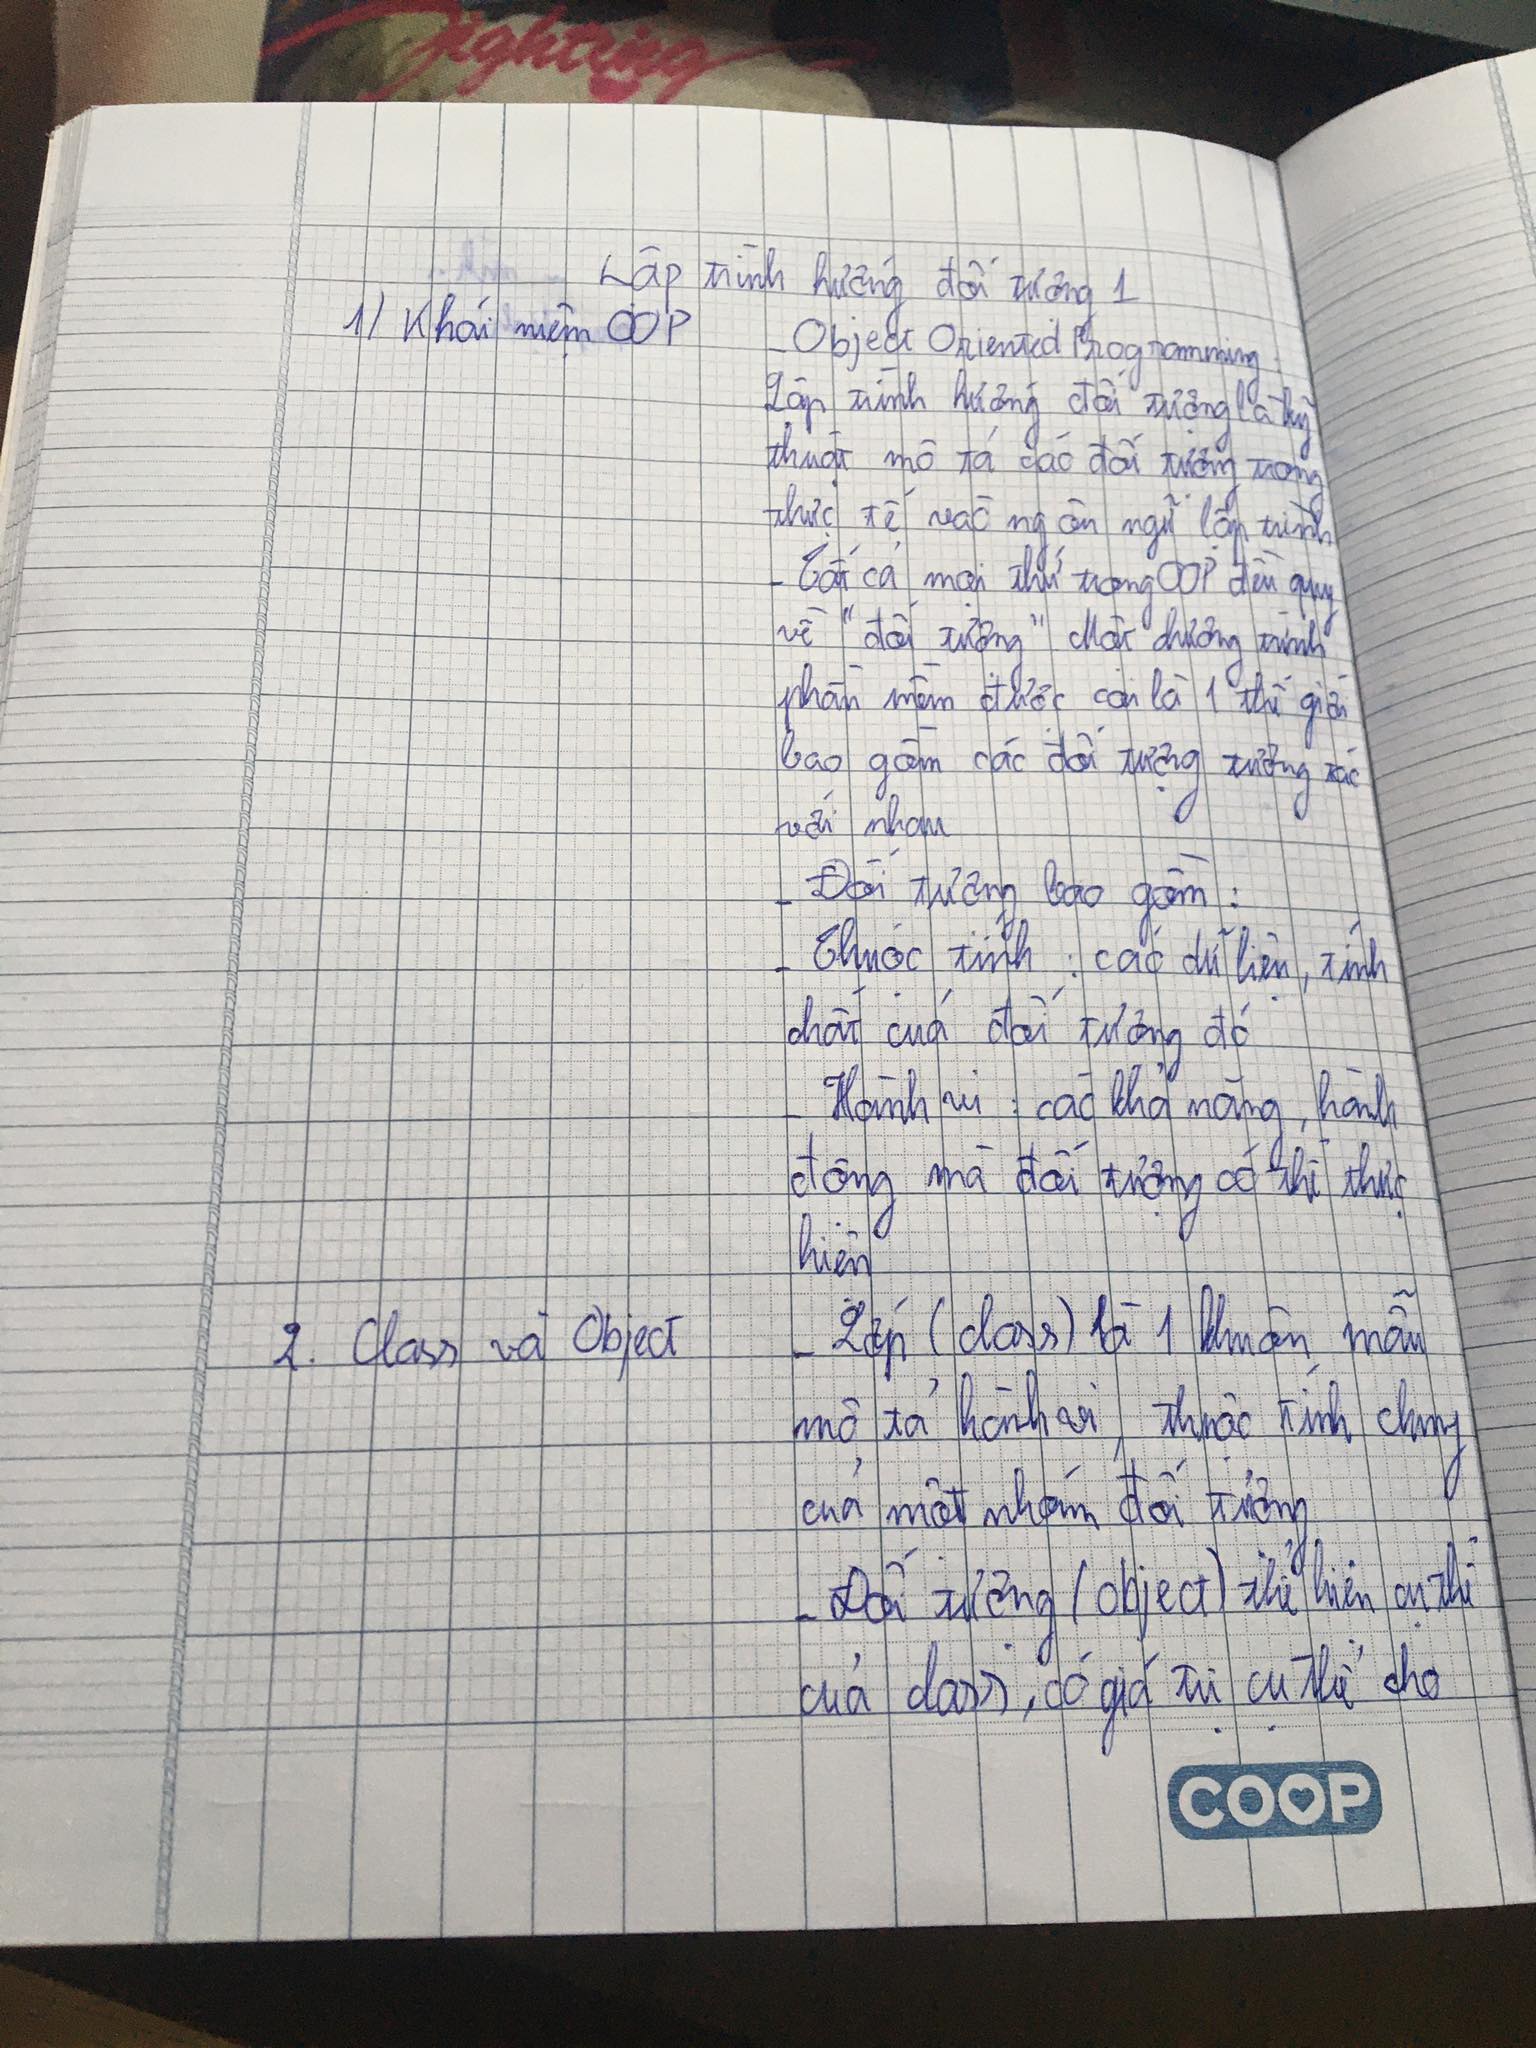 Fighting
Lập trình hướng đối tượng 1
1) Khái niệm OOP
- Object Oriented Programming.
Lập trình hướng đối tượng là kỹ
thuật mô tả các đối tượng trong
thực tế vào ngôn ngữ lập trình
- Tất cả mọi thứ trong OOP đều quy
về "đối tượng" Một chương trình
phần mềm được coi là 1 thế giới
bao gồm các đối tượng tương tác
với nhau
- Đối tượng bao gồm :
- Thuộc tính : các dữ liệu, tính
chất của đối tượng đó
- Hành vi : các khả năng, hành
động mà đối tượng có thể thực
hiện
2. Class và Object
- Lớp (class) là 1 khuôn mẫu
mô tả hành vi, thuộc tính chung
của một nhóm đối tượng
- Đối tượng (object) thể hiện cụ thể
của class, có giá trị cụ thể cho
COOP